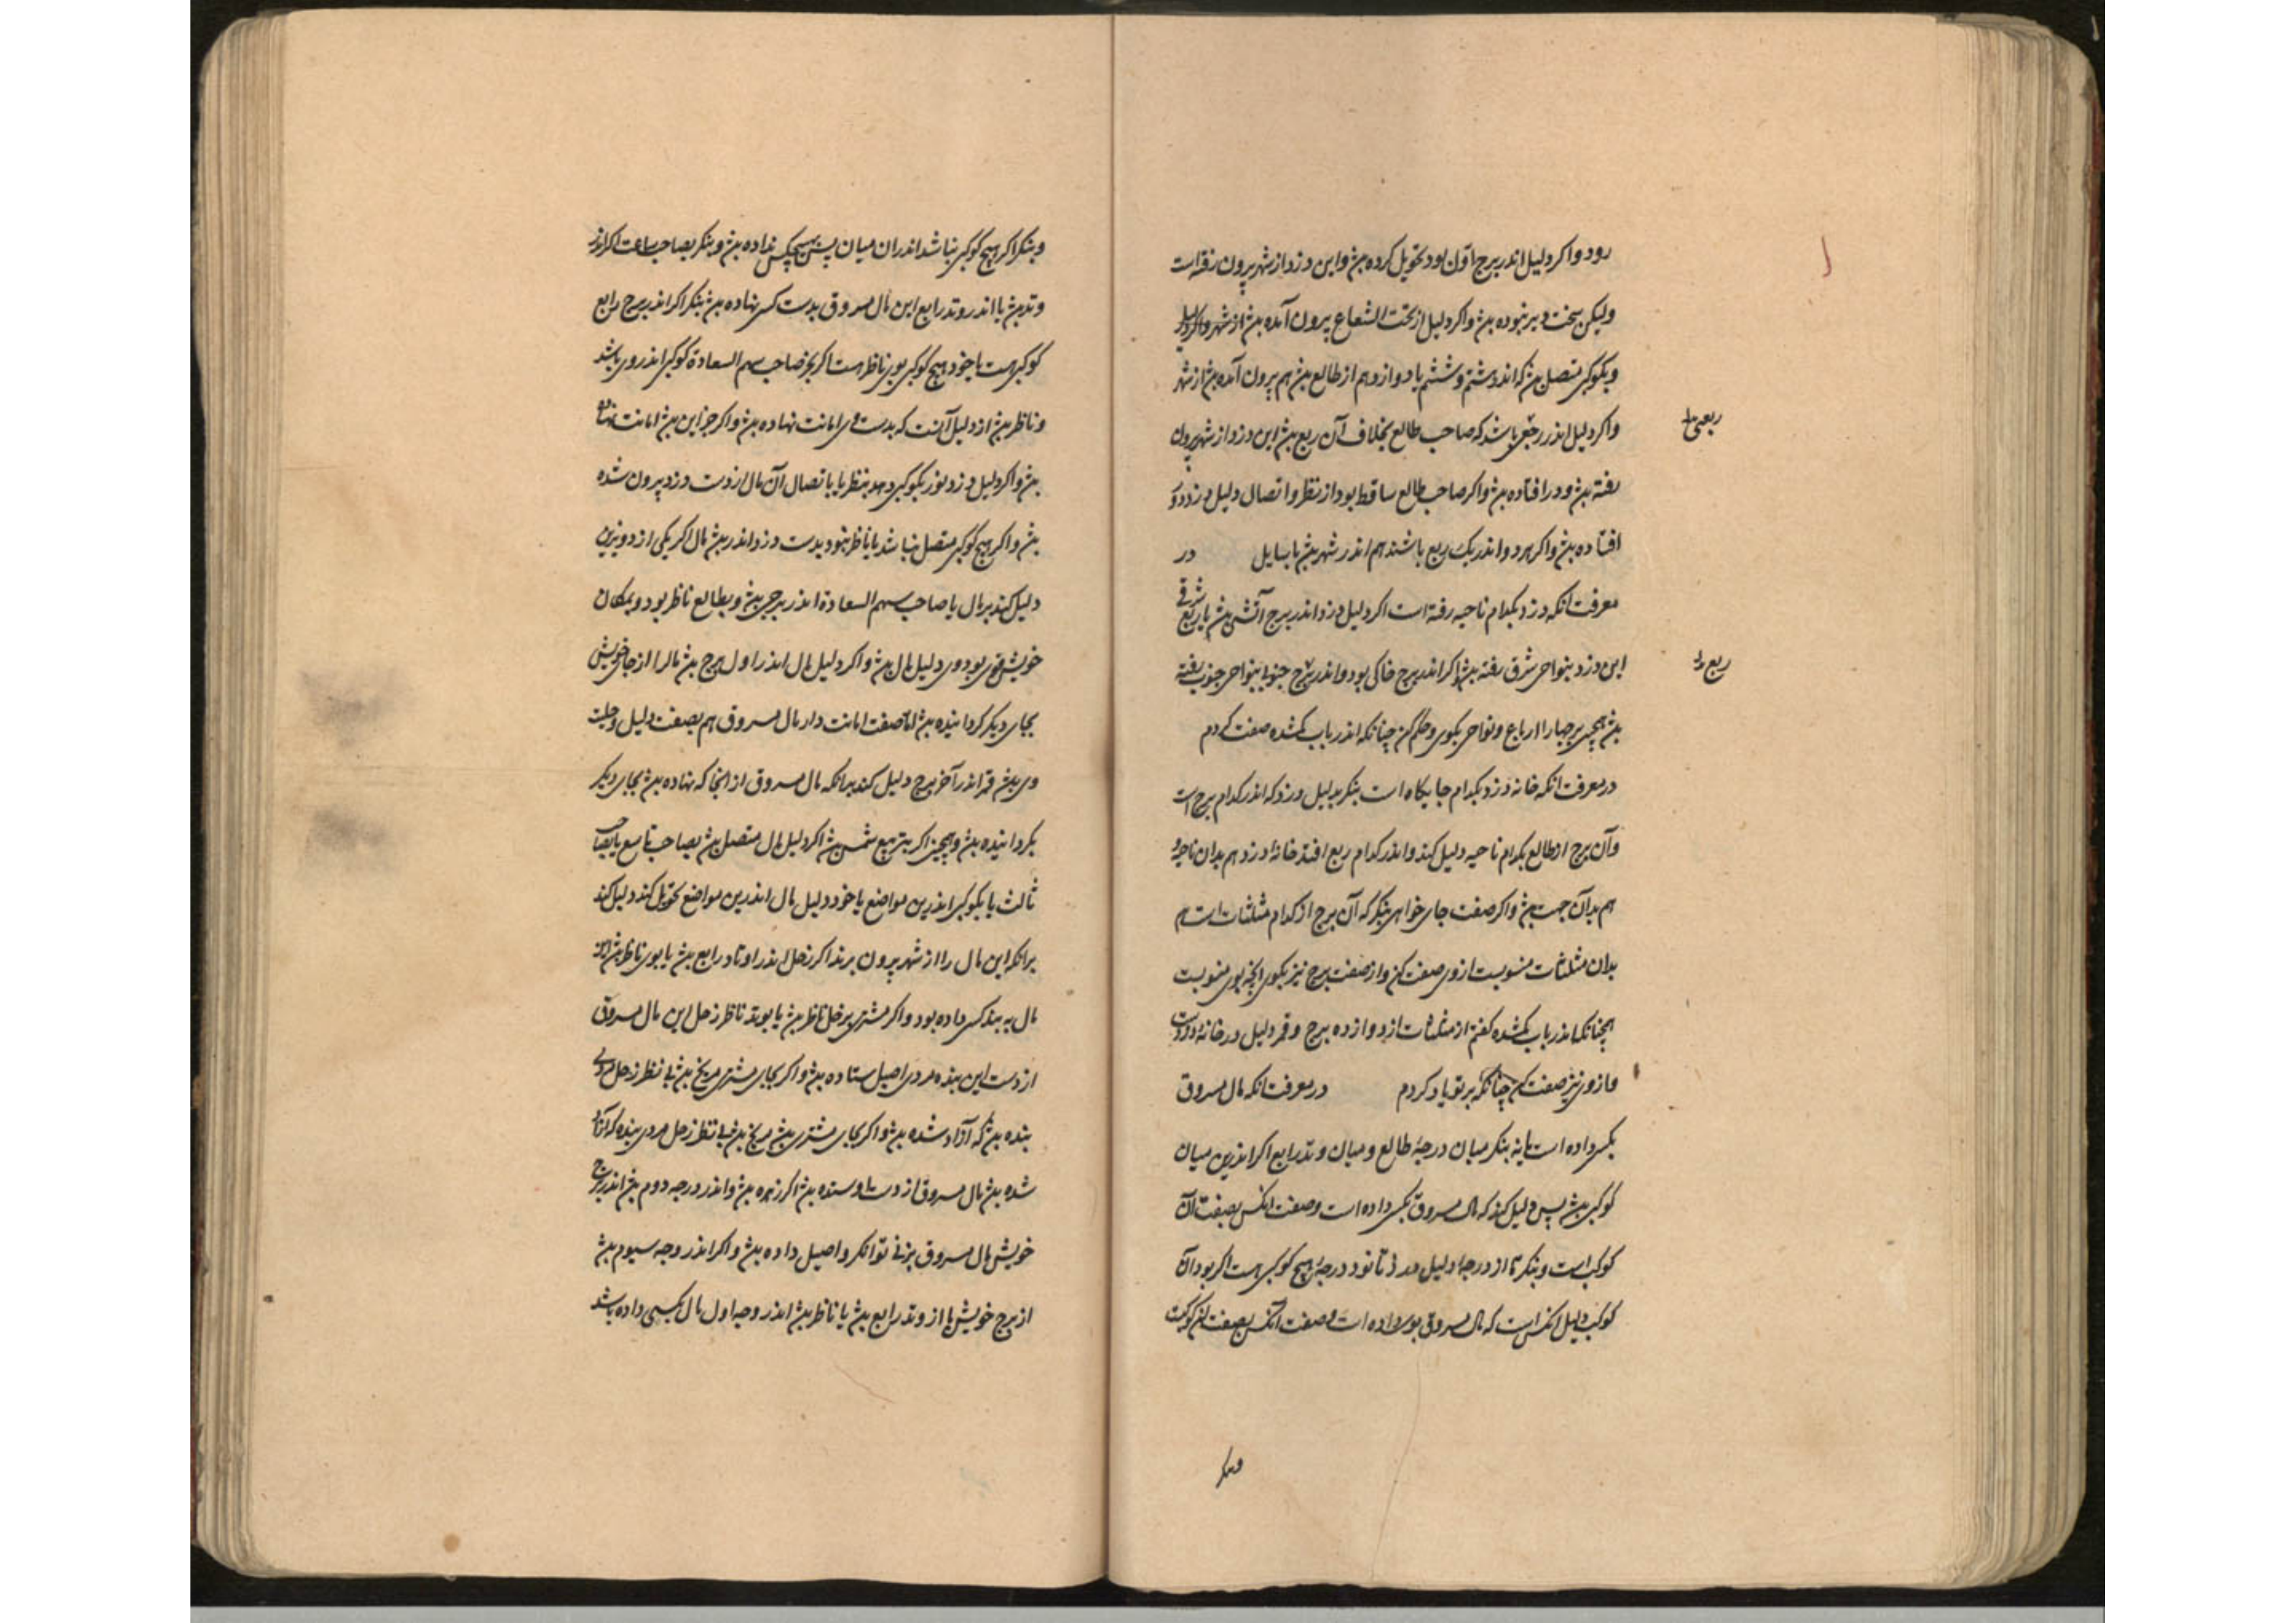 رود و اکر دلیل اندر برج اون بود تحویل کرده بش و این دزد از شهر بیرون رفته است
ولیکن سخت دیر نبوده بش و اکر دلیل از تحت الشعاع بیرون آمده بش از شهر و اکر دلیل
و بکوکبی متصل بش که اندر هشتم و ششم یا دوازدهم از طالع بش هم بیرون آمده بش از شهر
و اکر دلیل اندر ربعی باشد که صاحب طالع بخلاف آن ربع بش این دزد از شهر بیرون
ربعی
رفته بش و در افتاده بش و اکر صاحب طالع ساقط بود از نظر و اتصال دلیل دزد
افتاده بش و اکر هر دو اندر یک ربع باشند هم اندر شهر بش با سایل در
معرفت آنکه دزد بکدام ناحیه رفته است اکر دلیل دزد اندر برج آتشی بش یا ربع شرقی
این دزد بنواحی شرق رفته بش و اکر اندر برج خاکی بود و اندر برج جنوبی بنواحی جنوب رفته
ربع
بش همچنین بر چهار ارباع و نواحی بکوی و حکم کن چنانکه اندر باب کمشده صفت کردم
در معرفت آنکه خانه دزد بکدام جایکاه است بنکر بدلیل دزد که اندر کدام برج است
و آن برج از طالع بکدام ناحیه دلیل کند و اندر کدام ربع افتد خانه دزد هم بدان ناحیه و
هم بدآن جهت بش و اکر صفت جای خواهی بنکر که آن برج از کدام مثلثات است هم
بدان مثلثات منسوبست ازوی صفت کن و از صفت برج نیز بکوی آنچه بوی منسوبست
همچنانکه اندر باب کمشده کفتم از مثلثات از دوازده برج و قمر دلیل در خانه
و ازوی نیز صفت کن چنانکه بر تو یاد کردم در معرفت آنکه مال مسروق
بکس داده است یا نه بنکر میان درجهٔ طالع و میان وتد رابع اکر اندرین میان
کوکبی بش پس دلیل کند که مال مسروق بکس داده است و صفت آنکس بصفت آن
کوکب است و بنکر تا از درجهٔ دلیل تا نود درجهٔ هیچ کوکبی هست اکر بود آن
کوکب دلیل آنکس است که مال مسروق بوی داده است و صفت آنکس بصفت آن کوکبست
وبنکر
وبنکر اکر هیچ کوکبی نباشد اندران میان پس بهیچکس نداده بش و بنکر بصاحب ساعت اکر اندر
وتد بش یا اندر وتد رابع این مال مسروق بدست کسی نهاده بش بنکر اکر اندر برج رابع
کوکبی هست یا خود هیچ کوکبی بوی ناظر هست اکر بجز صاحب سهم السعادة کوکبی اندر وی باشد
و ناظر بش از دلیل آنست که بدست وی امانت نهاده بش و اکر جز این بش امانت نهاده
بش و اکر دلیل دزد نور بکوکبی دهد بنظر یا باتصال آن مال از دست دزد بیرون شده
بش و اکر هیچ کوکبی متصل نباشد یا ناظر نبود بدست دزد اندر بش مال اکر یکی از دو نیرین
دلیل کند بر مال یا صاحب سهم السعادة اندر برجی بش و بطالع ناظر بود و بمکان
خویش قوی بود وی دلیل مال بش و اکر دلیل مال اندر اول برج بش مال را از جای خویش
بجای دیکر کردانیده بش اما صفت امانت دار مال مسروق هم بصفت دلیل و حلیت
وی بش قمر اندر آخر برج دلیل کند برانکه مال مسروق از آنجا که نهاده بش بجای دیکر
بکردانیده بش و همچنین اکر بتربیع شمس بش اکر دلیل مال متصل بش بصاحب تاسع یا بصاحب
ثالث یا بکوکبی اندرین مواضع یا خود دلیل مال اندرین مواضع تحویل کند دلیل کند
برانکه این مال را از شهر بیرون برند اکر زحل اندر اوتاد رابع بش یا بوی ناظر بش این
مال به بنده کسی داده بود و اکر مشتری بزحل ناظر بش یا بوتد ناظر زحل این مال مسروق
از دست این بنده مردی اصیل ستاده بش و اکر بجای مشتری مریخ بش بی نظر زحل مردی
بنده بش که آزاد شده بش و اکر بجای مشتری بش مریخ بش بی نظر زحل مردی بنده که آزاد
شده بش مال مسروق از دست او ستده بش اکر زهره بش و اندر درجه دوم بش اندر برج
خویش مال مسروق بزنی توانکر و اصیل داده بش و اکر اندر وجه سیوم بش
از برج خویش یا از وتد رابع بش یا ناظر بش اندر وجه اول مال بکسی داده باشد